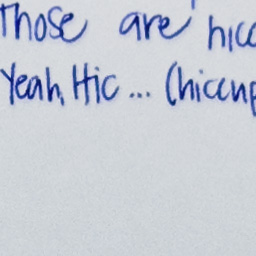 Those are hicc
Yeah, Hic... (hiccup